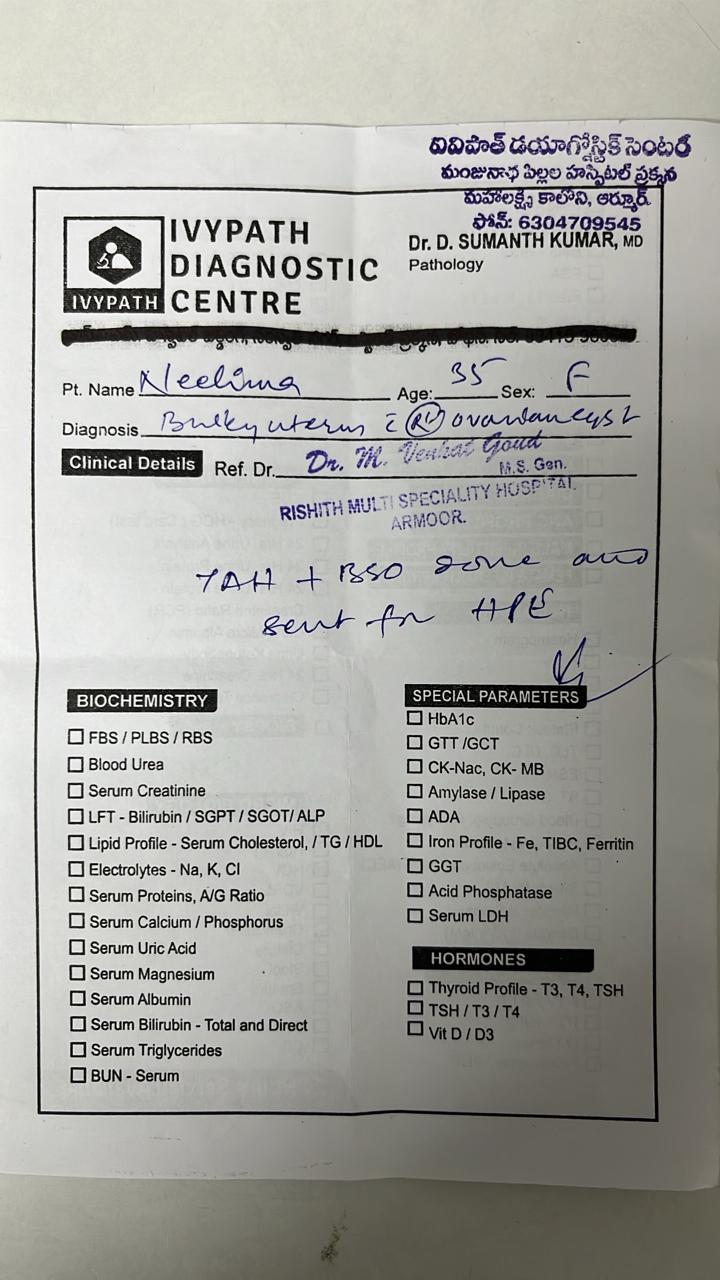 ఐవిపాత్ డయాగ్నోస్టిక్ సెంటర్
మంజునాథ పిల్లల హస్పిటల్ ప్రక్కన
మహాలక్ష్మి కాలోని, ఆర్మూర్.
ఫోన్: 6304709545
IVYPATH
DIAGNOSTIC
CENTRE
IVYPATH
Dr. D. SUMANTH KUMAR, MD
Pathology
Pt. Name Neelima Age: 35 Sex: F
Diagnosis Bulky uterus c̄ Rt ovarian cyst
Clinical Details Ref. Dr. Dr. M. Venkat Goud
M.S. Gen.
RISHITH MULTI SPECIALITY HOSPITAL
ARMOOR.
TAH + BSO done and
sent for HPE
BIOCHEMISTRY
☐ FBS / PLBS / RBS
☐ Blood Urea
☐ Serum Creatinine
☐ LFT - Bilirubin / SGPT / SGOT/ ALP
☐ Lipid Profile - Serum Cholesterol, / TG / HDL
☐ Electrolytes - Na, K, Cl
☐ Serum Proteins, A/G Ratio
☐ Serum Calcium / Phosphorus
☐ Serum Uric Acid
☐ Serum Magnesium
☐ Serum Albumin
☐ Serum Bilirubin - Total and Direct
☐ Serum Triglycerides
☐ BUN - Serum
SPECIAL PARAMETERS
☐ HbA1c
☐ GTT /GCT
☐ CK-Nac, CK- MB
☐ Amylase / Lipase
☐ ADA
☐ Iron Profile - Fe, TIBC, Ferritin
☐ GGT
☐ Acid Phosphatase
☐ Serum LDH
HORMONES
☐ Thyroid Profile - T3, T4, TSH
☐ TSH / T3 / T4
☐ Vit D / D3